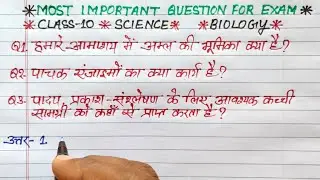 *MOST IMPORTANT QUESTION FOR EXAM*
*CLASS-10 * SCIENCE* BIOLOGY*
Q1. हमारे-आमाशय में अम्ल की भूमिका क्या है-?
Q2- पाचक संजाइमों का क्या कार्य है-?
Q3- पादप, प्रकाश-संश्लेषण के लिए आवश्यक कच्ची
सामग्री को कहाँ से प्राप्त करता है-?
उत्तर- 1